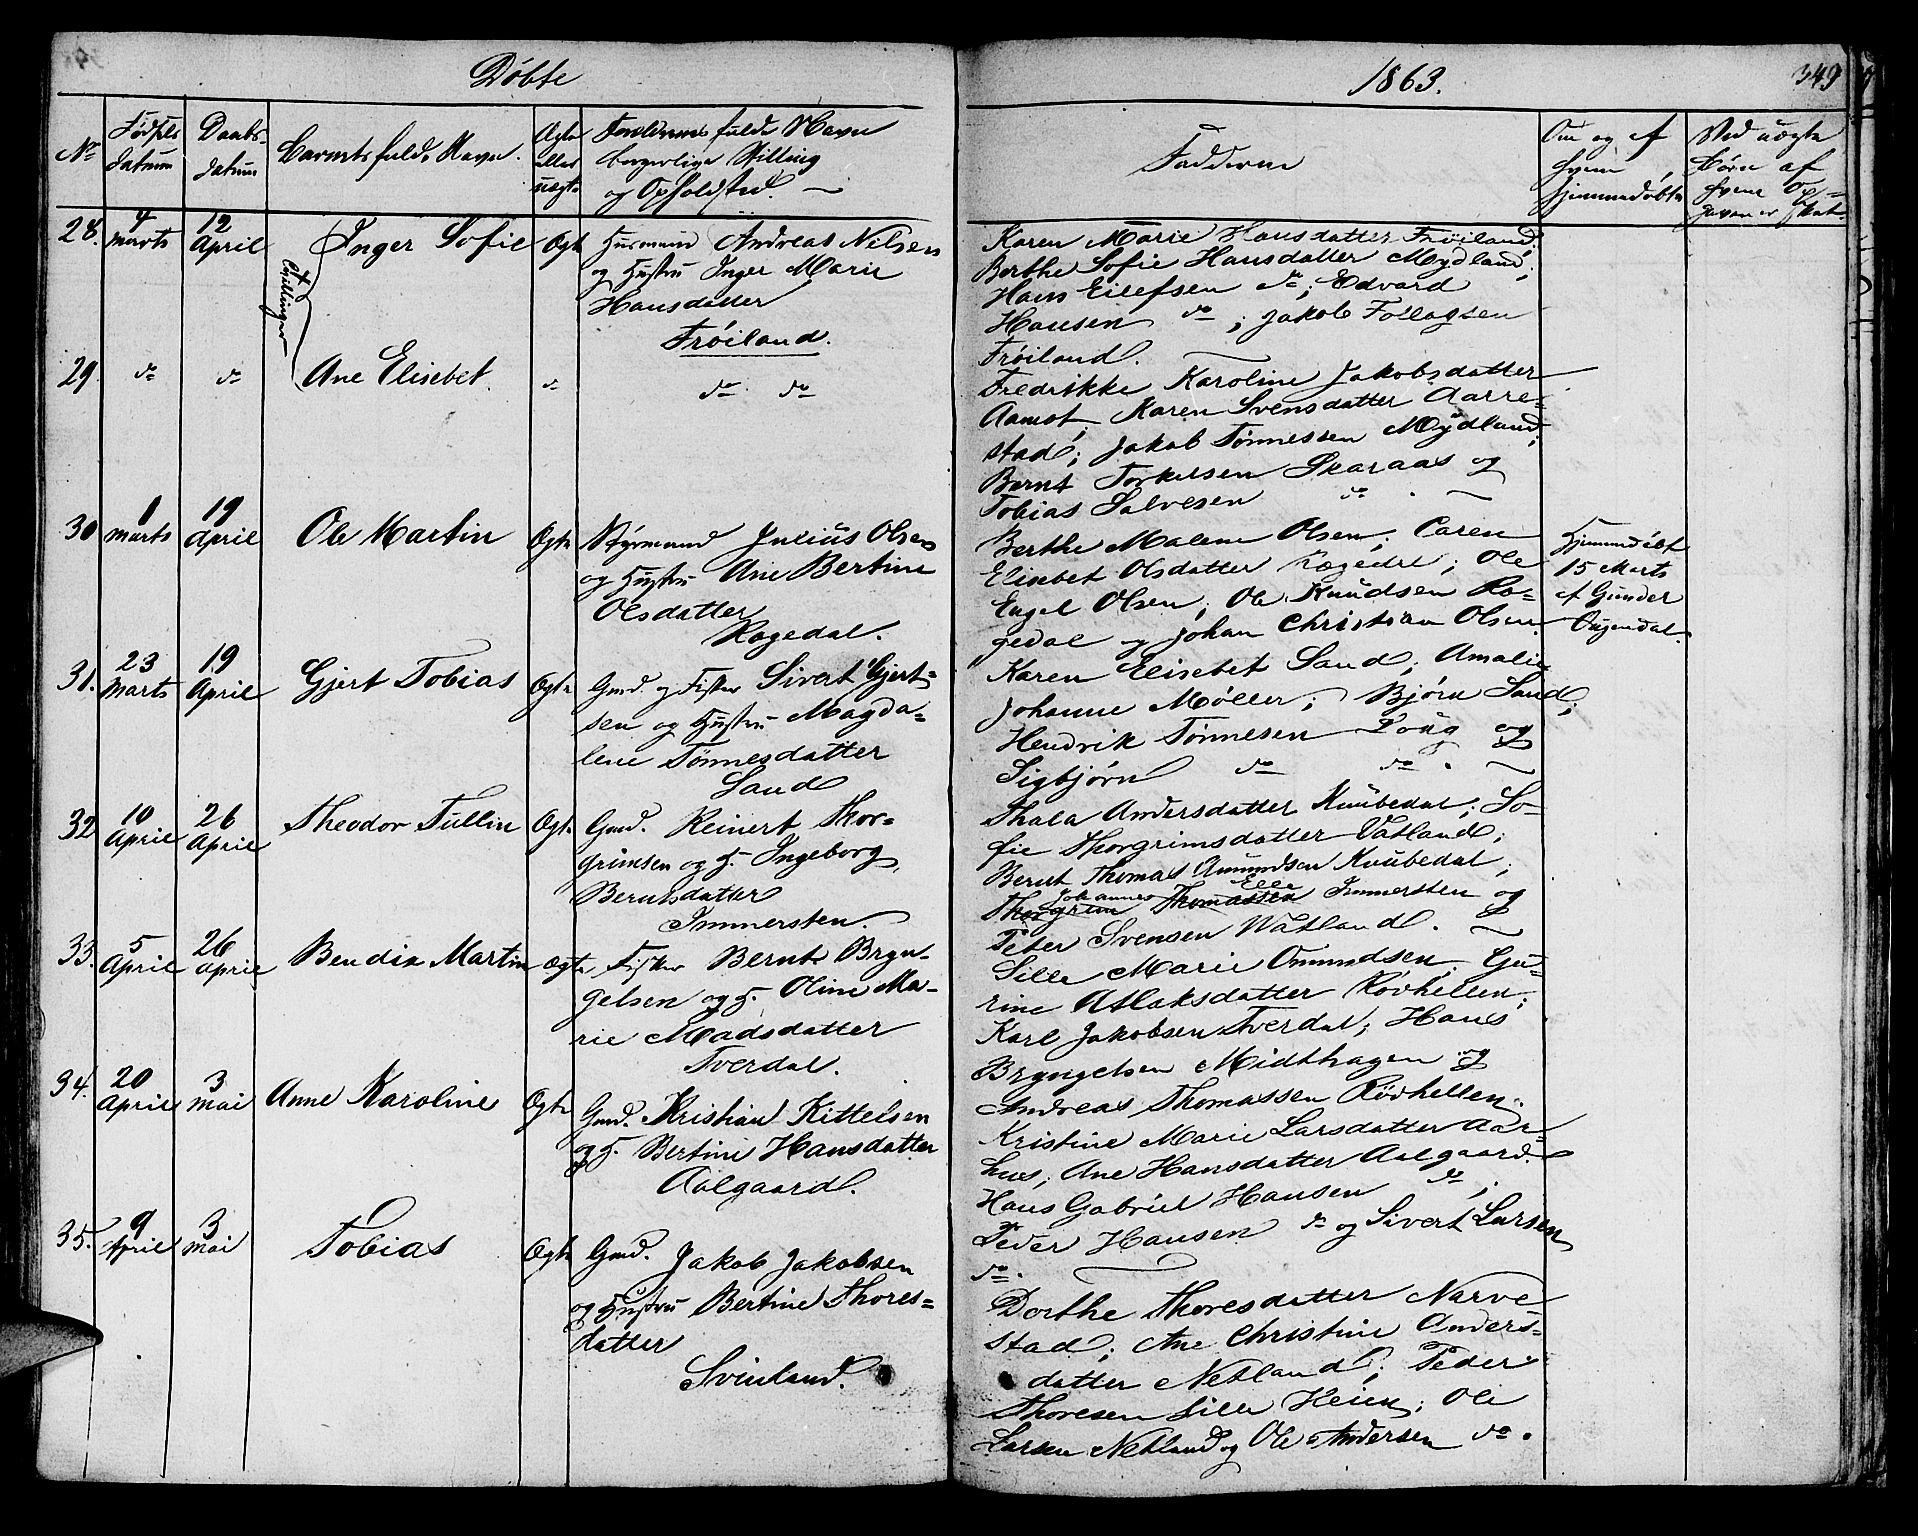 Døbte
1863.
349
No
Fødsels
datum
Daabs-
datum
Barnets fulde Navn.
Ægte
eller
uægte
Forældrenes fulde Navn
borgerlige Stilling
og Opholdsted.
Fadderne
Om og af
hvem
hjemmedøbte
Ved uægte
Børn af
hvem Op-
28. 4 marts 12 April Inger Sofie Ægte Huusmand Andreas Nilsen
og Hustru Inger Marie
Hansdatter
Frøiland.
Tvillinger
Karen Marie Hansdatter Frøiland,
Berthe Sofie Hansdatter Mydland;
Hans Eilefsen do; Edvard
Hansen do; Jakob Follagsen
Frøiland.
29. do do Ane Elisebet. do do do
Fredrikke Karoline Jakobsdatter
Aamot; Karen Svensdatter Aarre=
stad; Jakob Tønnessen Mydland;
Bernt Torkelsen Skaraas og
Tobias Salvesen do.
30 1 marts 19 April Ole Martin Ægte Styrmand Julius Olsen
og Hustru Ane Bertine
Olsdatter
Rægedal.
Berthe Malene Olsen; Caren
Elisebet Olsdatter Rægedal; Ole
Engel Olsen; Ole Knudsen Ræ=
gedal og Johan Christian Olsen.
Hjemmedøbt
15 Marts
af Gunder
31. 23 Marts 19 April Gjert Tobias Ægte Gmd. og Fisker Sivert Gjert=
sen og Hustru Magda=
lene Tønnesdatter
Sand
Karen Elisebet Sand; Amalie
Johanne Møller; Bjørn Sand;
Hendrik Tønnesen Poug og
Sigbjørn do do.
32 10 April 26 April Theodor Tullin Ægte Gmd. Reinert Thor=
grimsen og H. Ingeborg
Berntsdatter
Immersten.
Thala Andersdatter Knubedal; So=
fie Thorgrimsdatter Vatland;
Bernt Thomas Amundsen Knubedal;
Johannes Elle
Thorgrim Thomassen Immersten og
Peter Svensen Watland.
33. 5 April 26 April Bendix Martin Ægte Fisker Bernt Bryn-
gelsen og H. Oline Ma-
rie Madsdatter
Tverdal.
Sille Marie Omundsen, Gu=
rine Atlaksdatter Rövhellen;
Karl Jakobsen Tverdal; Hans
Bryngelsen Midthagen og
Andreas Thomassen Rövhellen.
34. 20 April 3 mai Anne Karoline Ægte Gmd. Kristian Kittelsen
og H. Bertine Hansdatter
Aalgaard.
Kristine Marie Larsdatter Aar=
hus; Ane Hansdatter Aalgaard
Hans Gabriel Hansen do;
Peder Hansen do og Sivert Larsen
do.
35. 9 April 3 mai Tobias Ægte Gmd. Jakob Jakobsen
og Hustru Bertine Thores=
datter
Svinland.
Dorthe Thoresdatter Narve
stad; Ane Christine Anders=
datter Netland; Peder
Thoresen Lille Heien; Ole
Larsen Netland og Ole Andersen do.